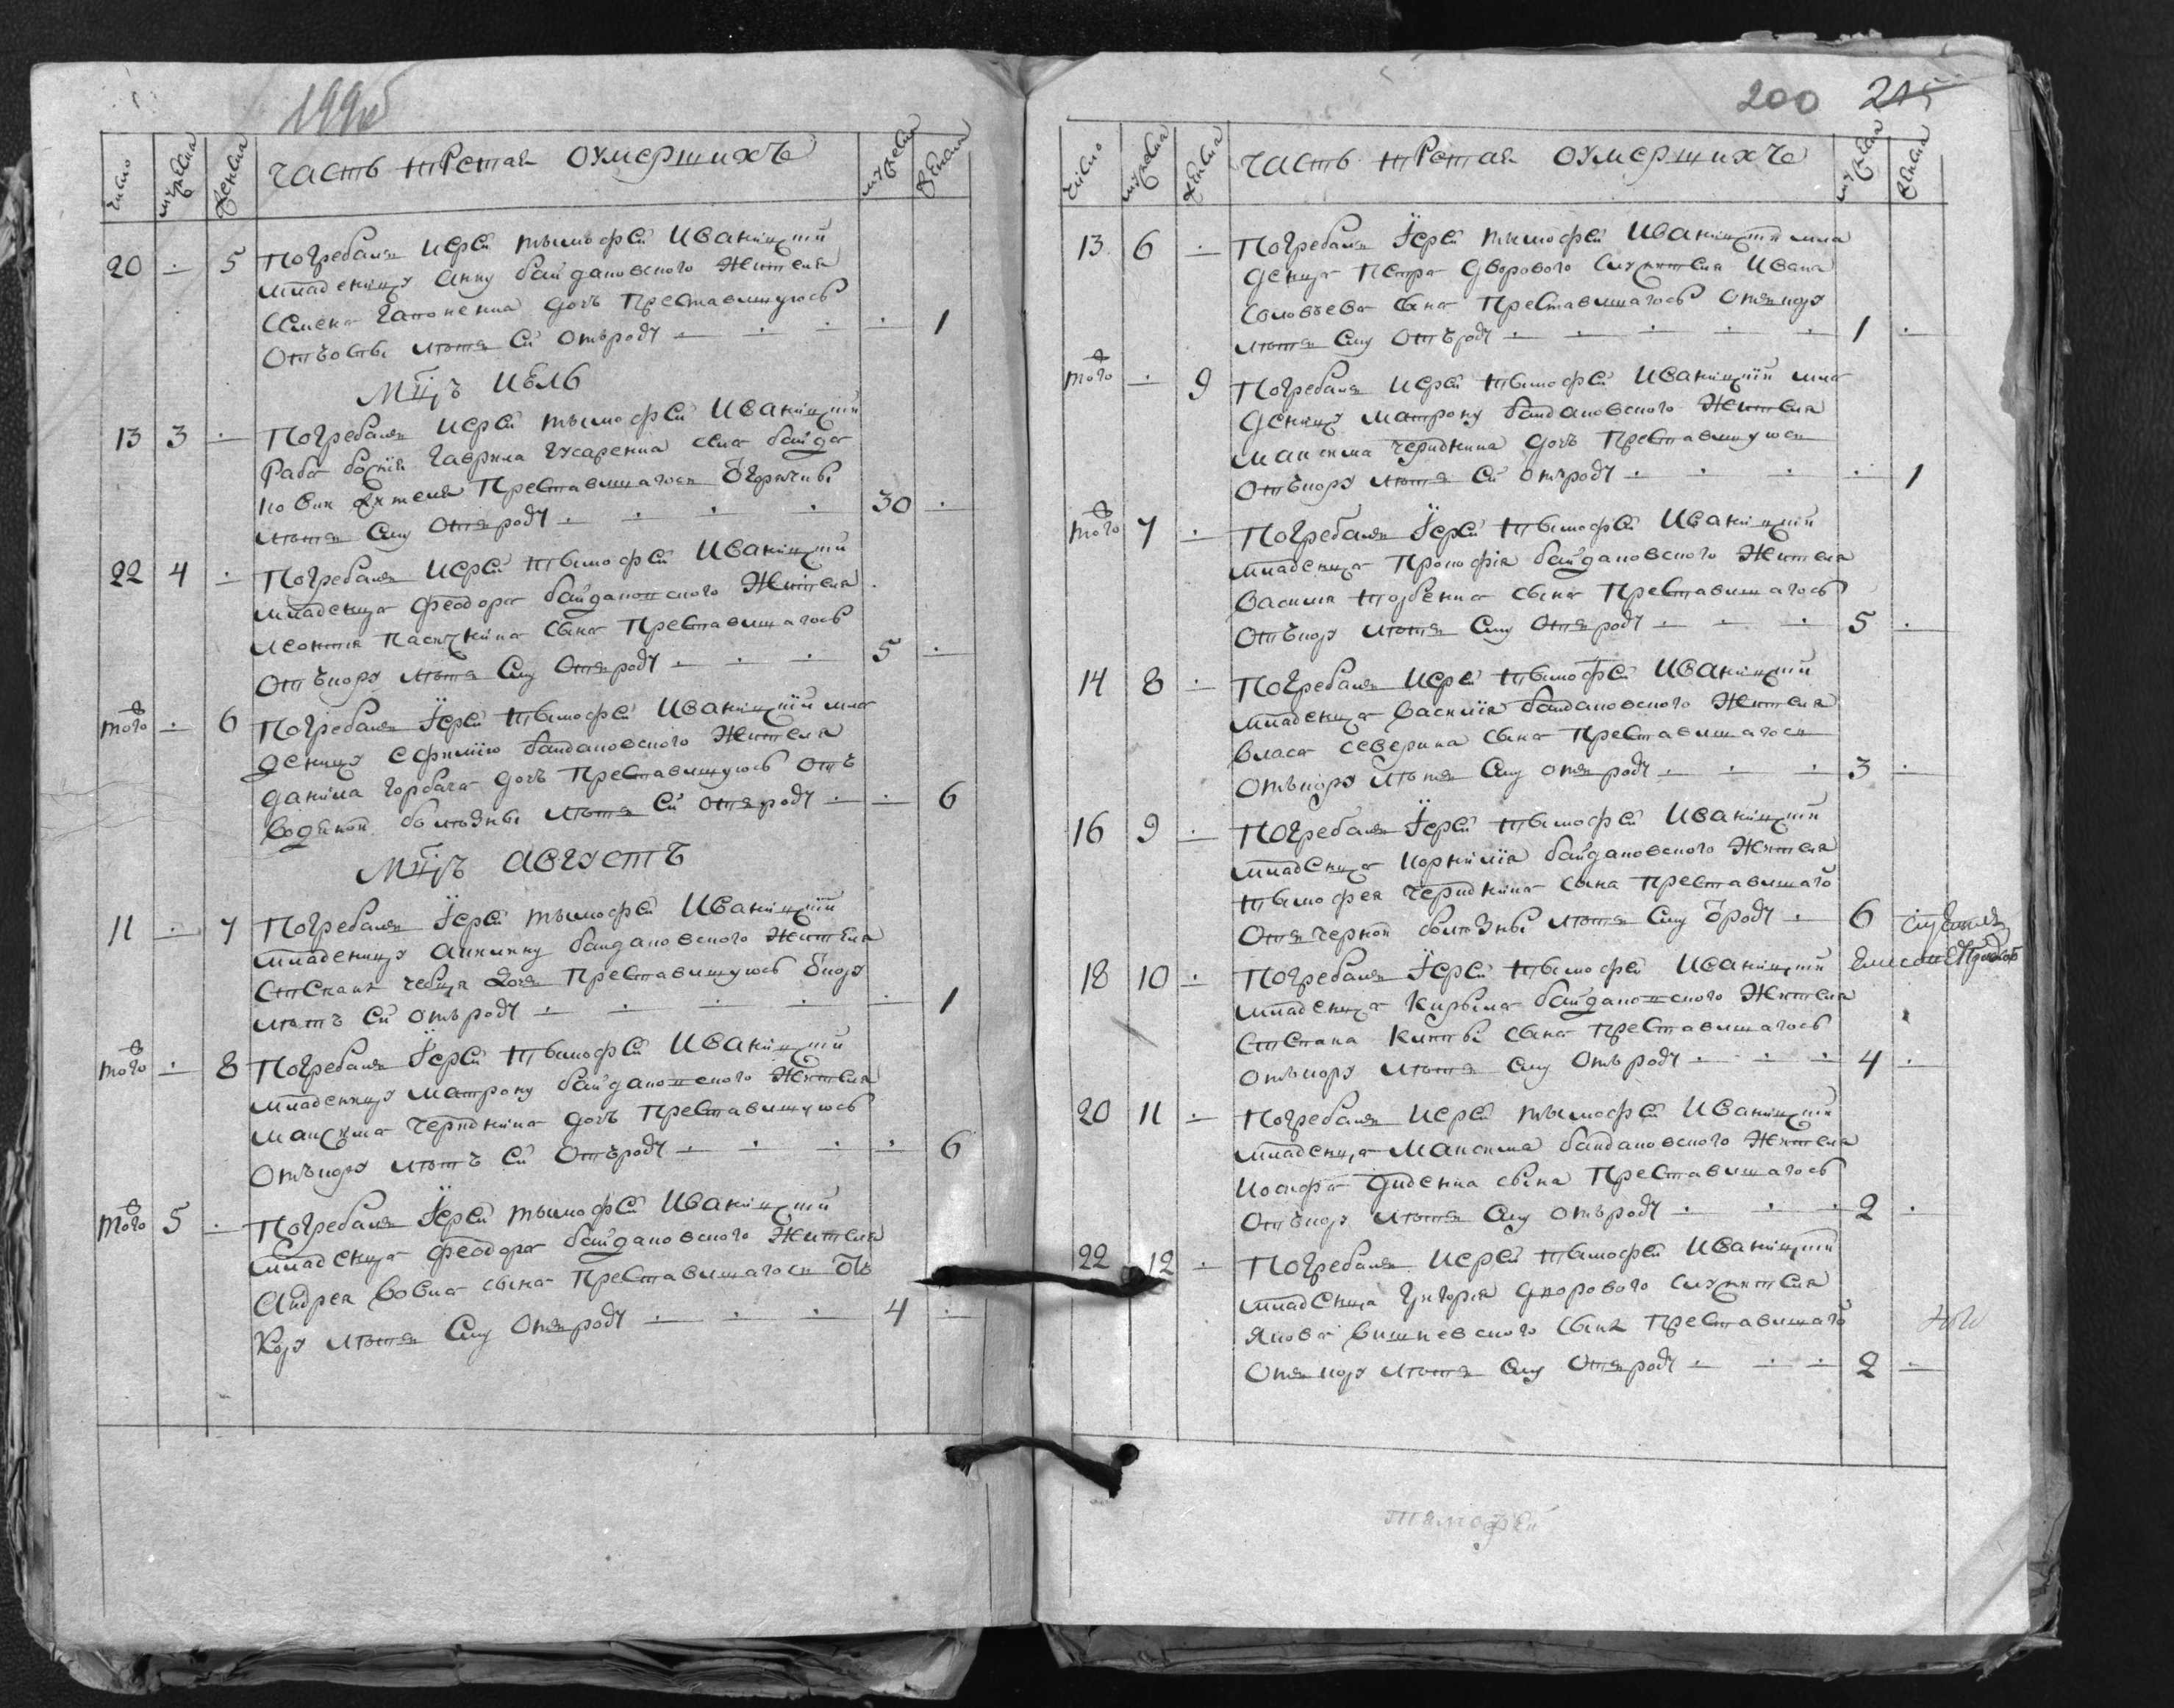 199об
число мужеска женска часть третая оумершихъ мужеска женска
20 5 погребалъ иерей тымофей Иваницкий
младеницу анну байдановского жителя
семена гапоненка дочь преставшуюсь
отъ оспы лѣтъ ей отъроду 1
Мцъ июль
13 3 погребалъ иерей тымофей Иваницкий
раба божія гаврила гусаренка села байда
ковки жителя преставшагося ѿ горячки
лѣтъ ему отъроду 30
22 4 погребалъ иерей тымофей Иваницкий
младенца феодора байдаковского жителя
леонтия пасичника сына преставшагось
отъ кору лѣтъ ему отъроду 5
тогѡ 6 погребалъ Їерей тымофей Иваницкий мла
деницу ефимію байдановского жителя
данила горбача дочь преставшуюсь отъ
водяной болѣзны лѣтъ ей отъроду 6
Мцъ августъ
11 7 погребалъ Їерей тымофей Иваницкий
младеницу акилину байдановского жителя
стспана дочъ преставшуюсь ѿ кору
лѣтъ ей отъроду 1
того 8 погребалъ Їерей тымофей Иваницкий
младеницу матрону байдаковского жителя
максима чередника дочь преставшуюсь
отъ кору лѣтъ ей отъроду 6
того 5 погребалъ Їерей тымофей Иваницкий
младенца феодора байдановского жителя
андрея вовка сына преставшагося ѿ
кору лѣтъ ему отъроду 4
200 215
число мужеска женска часть третая оумершихъ мужеска женска
13 6 погребалъ Їерей тымофей Иваницкий мла
денца петра дворового служителя Ивана
соловьева сына преставшагось отъ кору
лѣтъ ему отъроду 1
того 9 погребалъ иерей тымофей Иваницкий мла
деницу матрону байдановского жителя
максима чередника дочь преставшуюся
отъ кору лѣтъ ей отъроду 1
того 7 погребалъ Їерей тымофей Иваницкий
младенца прокофія байдановского жителя
василя сына преставшагось
отъ кору лѣтъ ему отъроду 5
14 8 погребалъ иерей тымофей Иваницкий
младенца василія байдановского жителя
власа северина сына преставшагося
отъ кору лѣтъ ему отъ роду 3
16 9 погребалъ Їерей тымофей Иваницкий
младенца корнилія байдановского жителя
тымофея чередника сына преставшаго
отъ черной болѣзны лѣтъ ему ѿроду 6
18 10 погребалъ Їерей тымофей Иваницкий
младенца кирыла байдаковского жителя
стспана сына преставшагось
отъ кору лѣтъ ему отъ роду 4
20 11 погребалъ иерей тымофей Иваницкий
младенца максима байдановского жителя
иосифа диденка сына преставшагось
отъ кору лѣтъ ему отъроду 2
22 12 погребалъ иерей тымофей Иваницкий
младенца григория дворового служителя
якова вишневского сына преставшаго
отъ кору лѣтъ ему отъроду 2
тымофей